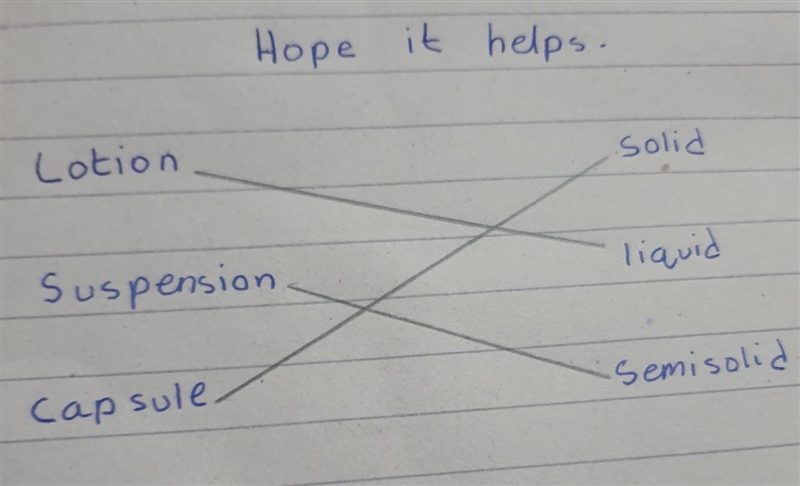 Hope it helps.
Lotion
solid
liquid
Suspension
Semisolid
Capsule